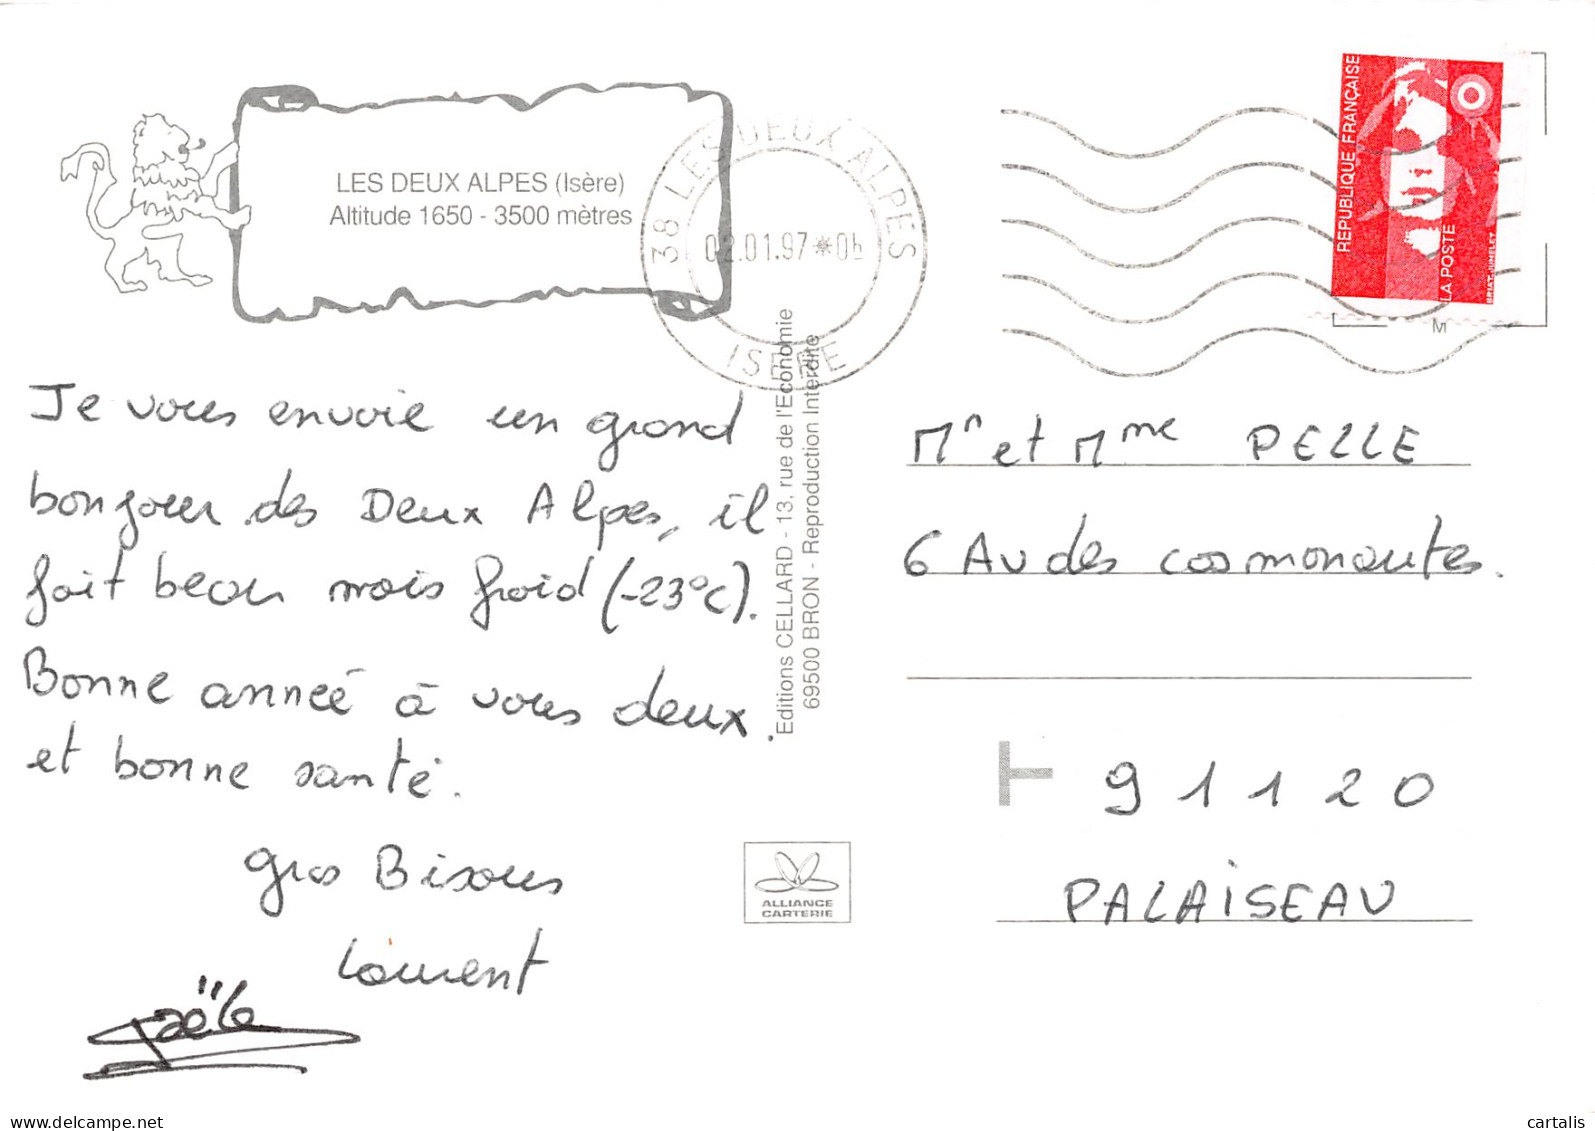 LES DEUX ALPES (Isère)
Altitude 1650 - 3500 mètres
38 LES DEUX ALPES
02.01.97
ISERE
REPUBLIQUE FRANÇAISE
LA POSTE
BRIAT-JUMELET
M
Je vous envoie un grand
bonjour des Deux Alpes, il
fait beau mais froid (-23°C).
Bonne anneé à vous deux.
et bonne santé.
gros Bisous
Laurent
Editions CELLARD - 13, rue de l'Economie
69500 BRON - Reproduction Interdite
Mr et Mme PELLE
6 Av des cosmonautes.
91120
PALAISEAU
ALLIANCE
CARTERIE
www.delcampe.net
cartalis